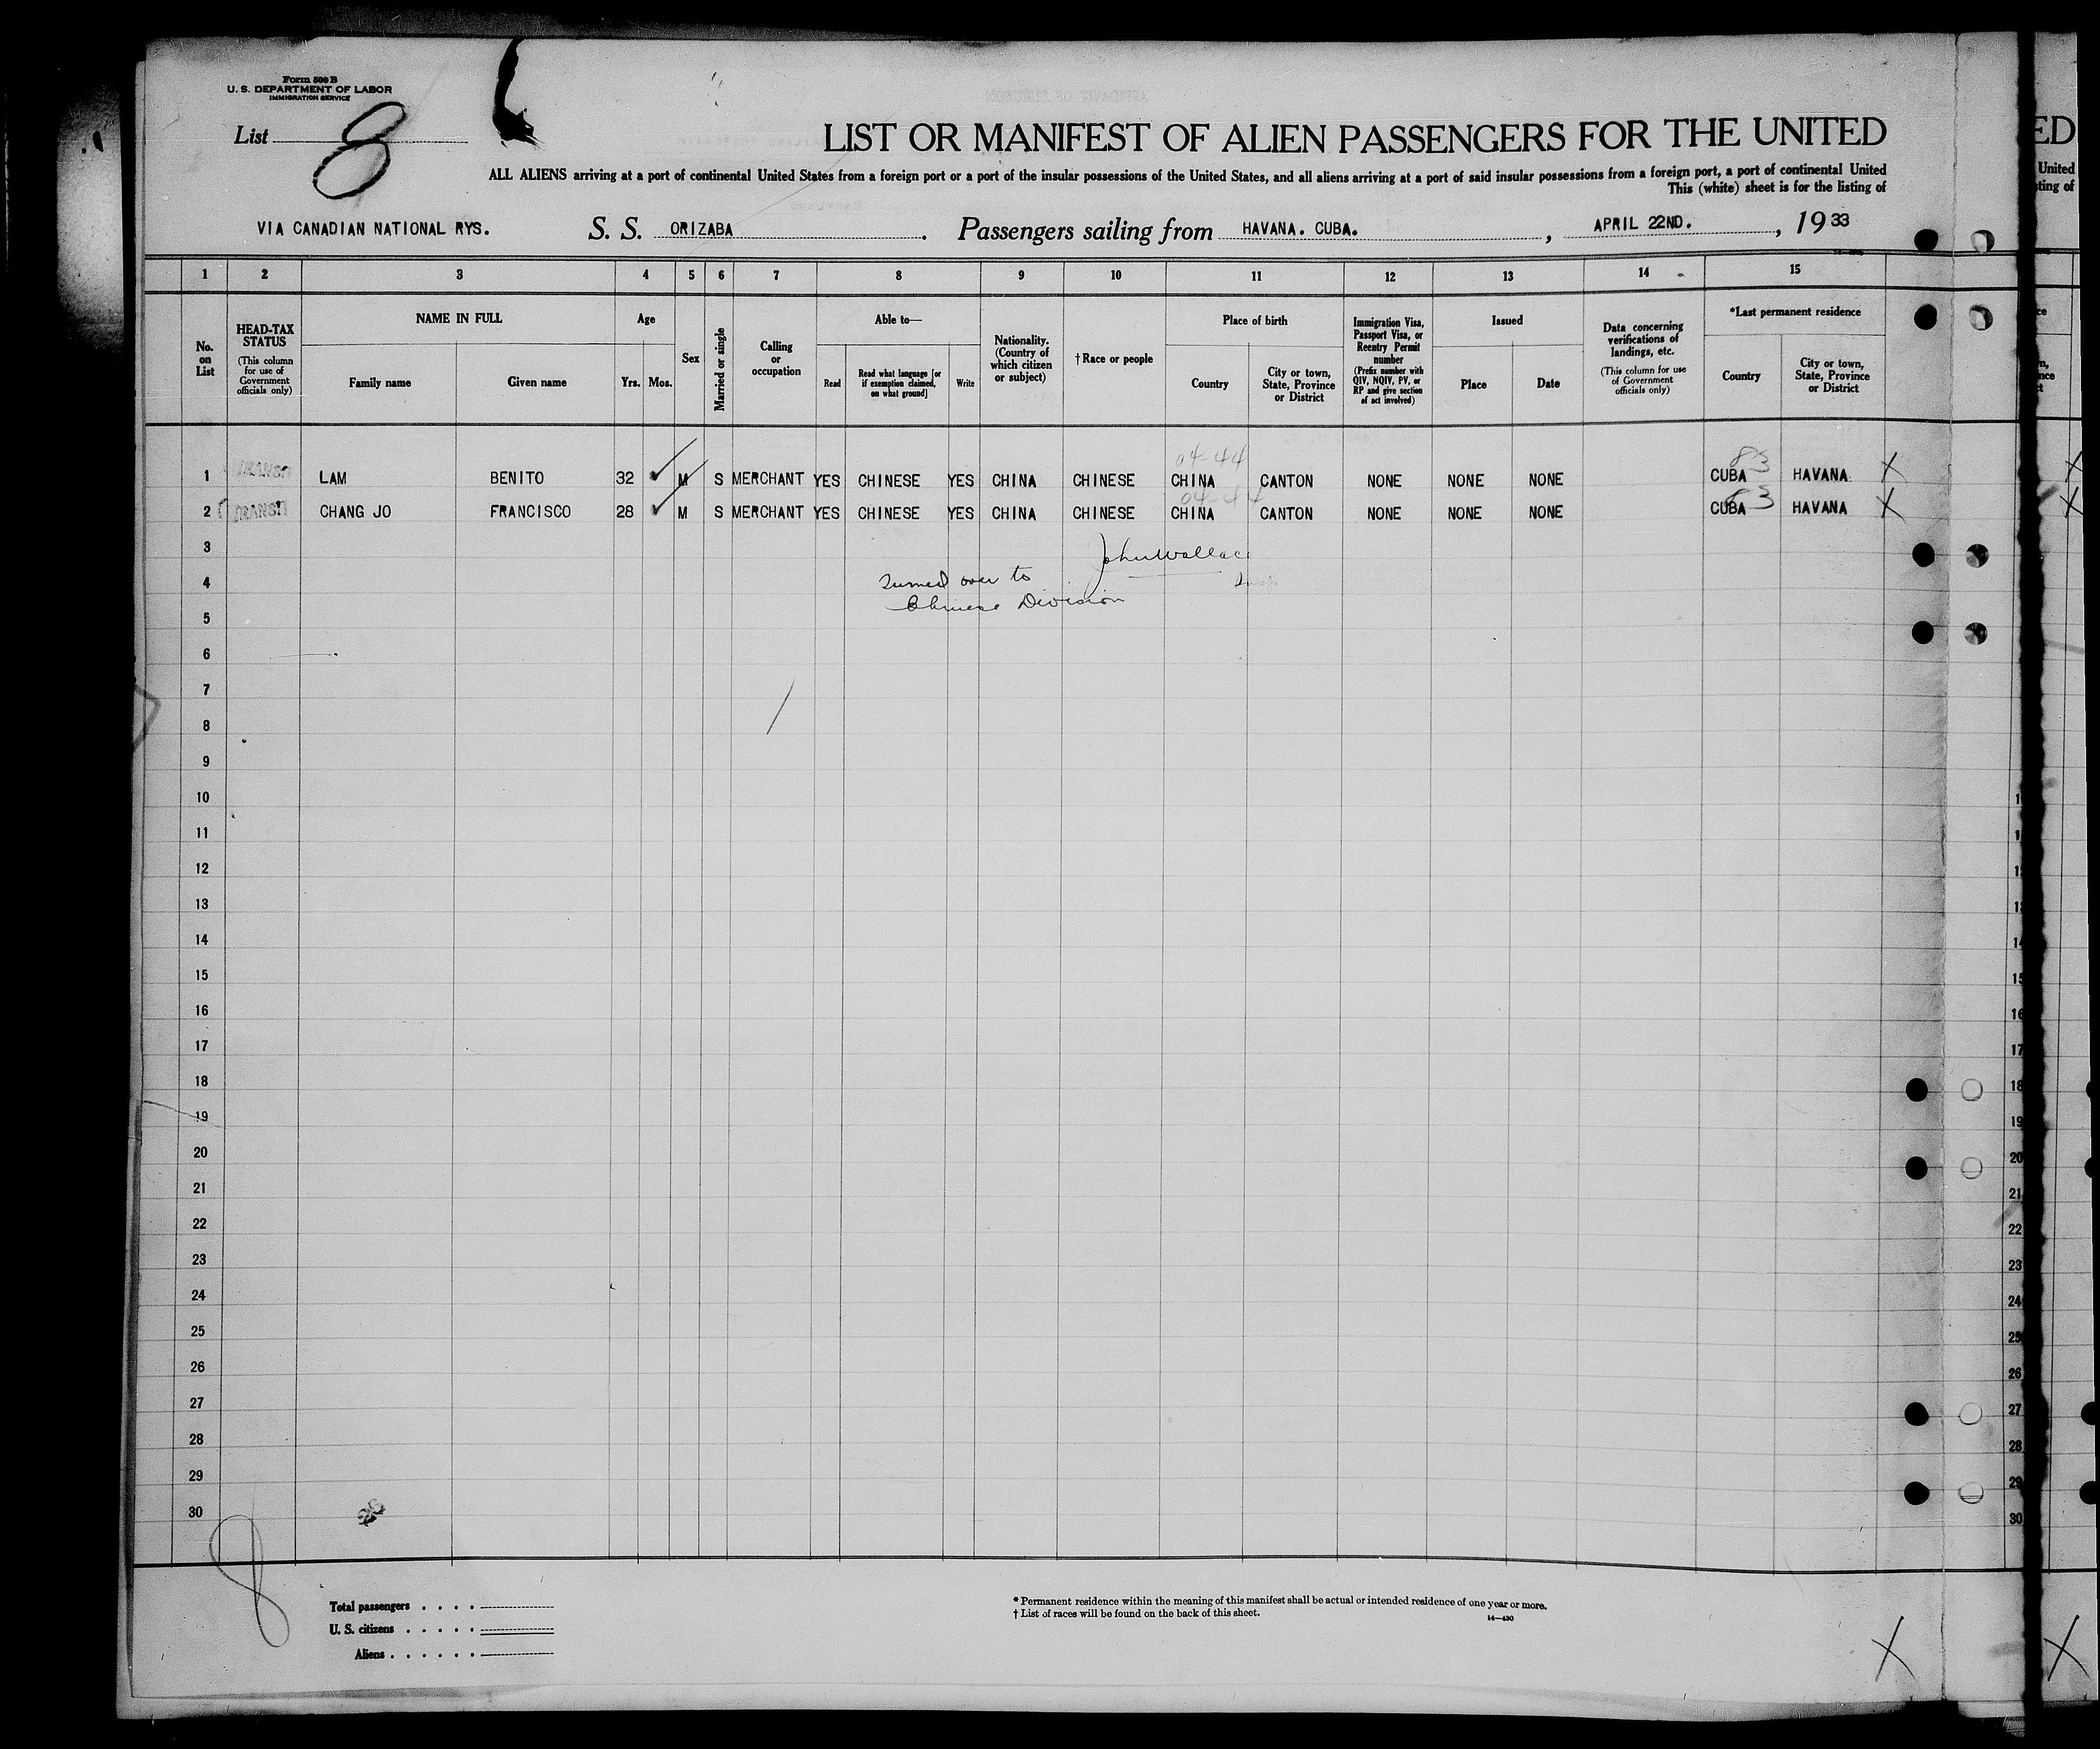 Form 500 B
U. S. DEPARTMENT OF LABOR
IMMIGRATION SERVICE
List 8
LIST OR MANIFEST OF ALIEN PASSENGERS FOR THE UNITED
ALL ALIENS arriving at a port of continental United States from a foreign port or a port of the insular possessions of the United States, and all aliens arriving at a port of said insular possessions from a foreign port, a port of continental United
This (white) sheet is for the listing of
VIA CANADIAN NATIONAL RYS. S. S. ORIZABA . Passengers sailing from HAVANA. CUBA. , APRIL 22ND. , 1933
1 2 3 4 5 6 7 8 9 10 11 12 13 14 15
No. on List
HEAD-TAX STATUS (This column for use of Government officials only)
NAME IN FULL
Family name
Given name
Age
Yrs.
Mos.
Sex
Married or single
Calling or occupation
Able to—
Read
Read what language [or if exemption claimed, on what ground]
Write
Nationality. (Country of which citizen or subject)
†Race or people
Place of birth
Country
City or town, State, Province or District
Immigration Visa, Passport Visa, or Reentry Permit number (Prefix number with QIV, NQIV, PV, or RP and give section of act involved)
Issued
Place
Date
Data concerning verifications of landings, etc. (This column for use of Government officials only)
*Last permanent residence
Country
City or town, State, Province or District
04-44 83
1 TRANSIT LAM BENITO 32 M S MERCHANT YES CHINESE YES CHINA CHINESE CHINA CANTON NONE NONE NONE CUBA HAVANA X
04-44 83
2 TRANSIT CHANG JO FRANCISCO 28 M S MERCHANT YES CHINESE YES CHINA CHINESE CHINA CANTON NONE NONE NONE CUBA HAVANA X
3 John Wallace
4 Turned over to Insp
Chinese Division
5
6
7
8
9
10
11
12
13
14
15
16
17
18
19
20
21
22
23
24
25
26
27
28
29
30
8
Total passengers
U. S. citizens
Aliens
* Permanent residence within the meaning of this manifest shall be actual or intended residence of one year or more.
† List of races will be found on the back of this sheet.
14—430
X